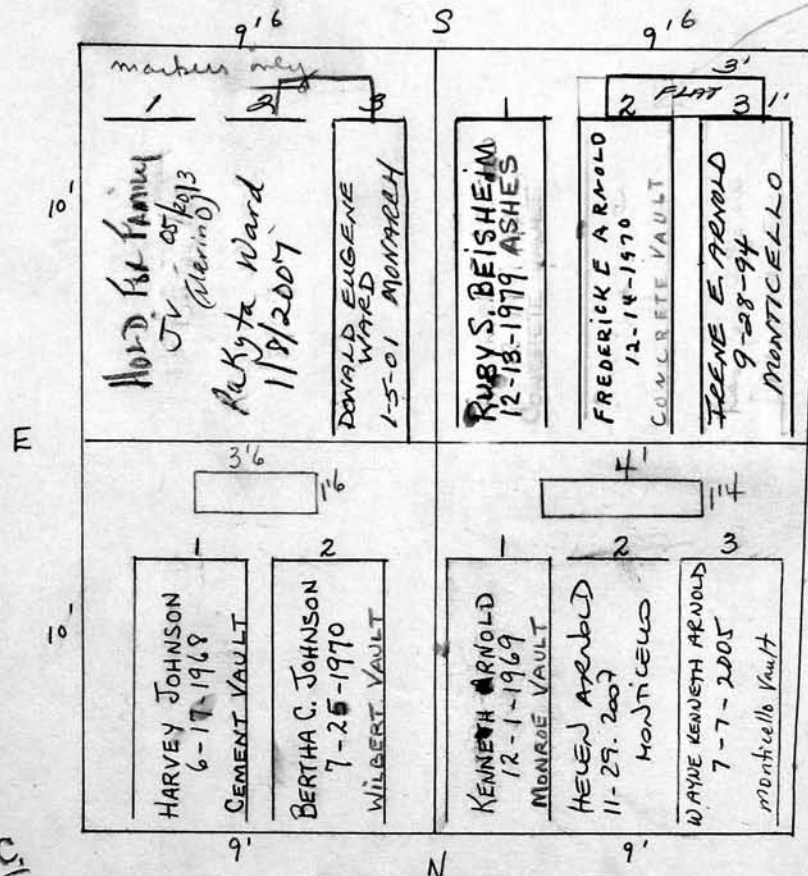 9'6 S 9'6
markers only
3'
FLAT
1 2 3 1 2 3 1'
10'
HOLD FOR FAMILY
Jv - 05/2013
RaKyta Ward
1/8/2007
DONALD EUGENE
WARD
1-5-01 MONARCH
RUBY S. BEISHEIM
12-13-1979 ASHES
CONCRETE
FREDERICK E ARNOLD
12-14-1970
CONCRETE VAULT
IRENE E. ARNOLD
9-28-94
MONTICELLO
E
3'6
1'6
4'
1'4
1 2 1 2 3
10'
HARVEY JOHNSON
6-17-1968
CEMENT VAULT
BERTHA C. JOHNSON
7-25-1970
WILBERT VAULT
KENNETH ARNOLD
12-1-1969
MONROE VAULT
HELEN ARNOLD
11-29-2007
MONTICELLO
WAYNE KENNETH ARNOLD
7-7-2005
monticello Vault
9' N 9'